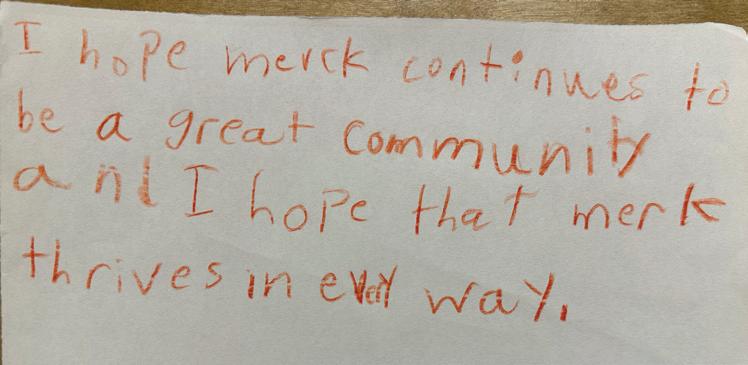 I hope merck continues to
be a great community
and I hope that merk
thrives in every way.